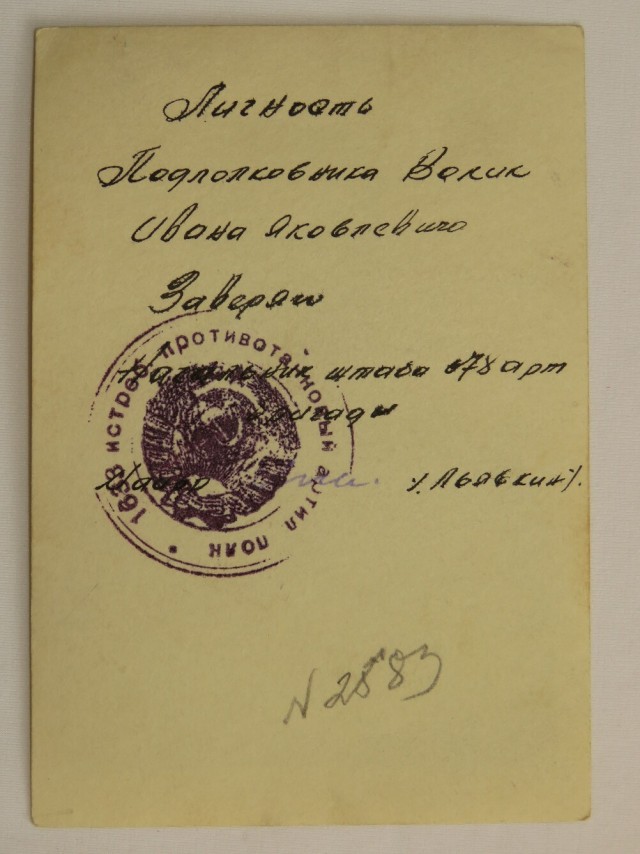 Личность
Подполковника Велик
Ивана Яковлевича
Заверяю
Начальник штаба 78 арт
бригады
Майор /. Львёвкин/.
истреб противотанковый артил полк
N 2883